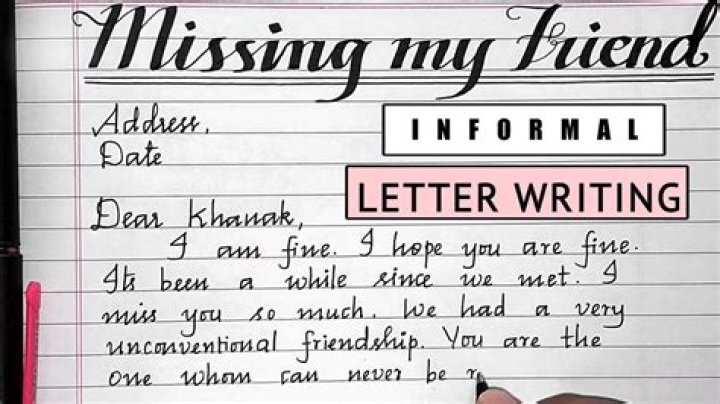 Missing my Friend
Address,
Date
INFORMAL
LETTER WRITING
Dear Khanak,
I am fine. I hope you are fine.
Its been a while since we met. I
miss you so much. We had a very
unconventional friendship. You are the
one whom can never be